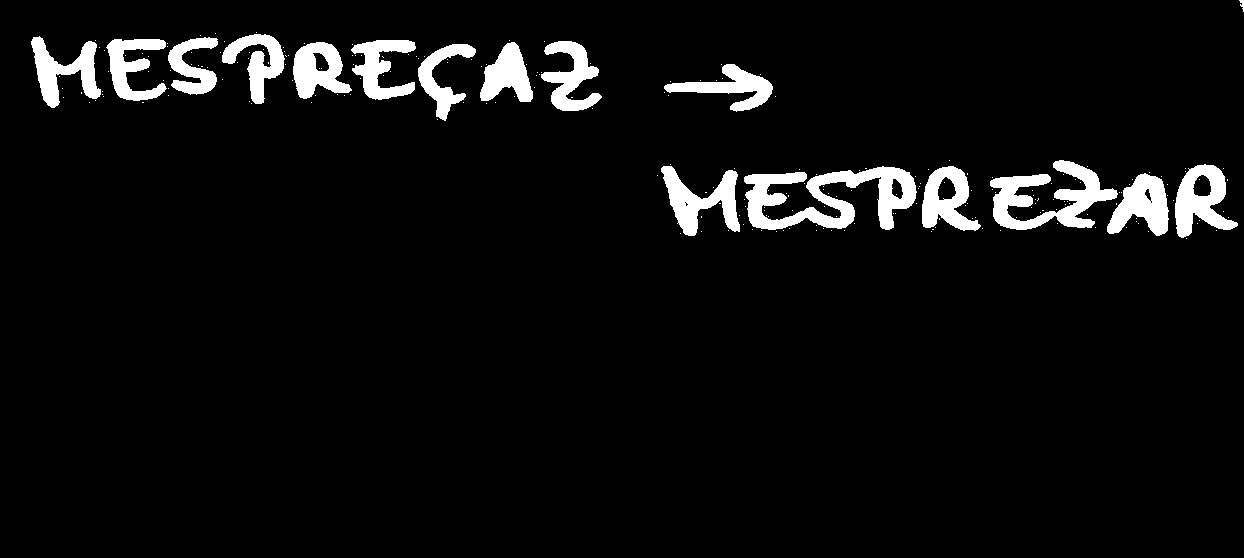 MESPREÇAZ →
MESPREZAR